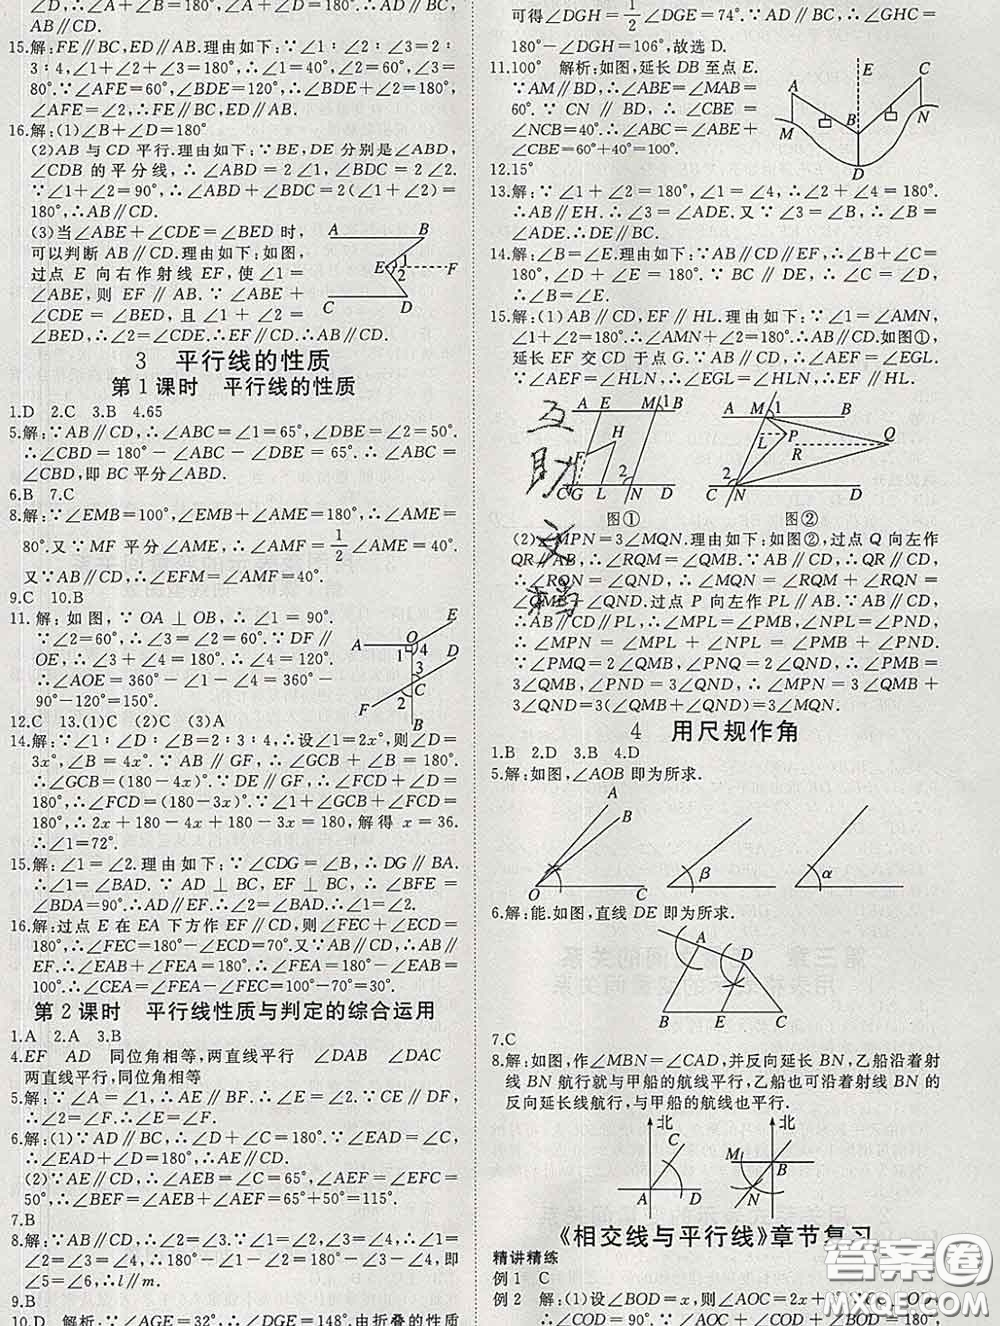 AB∥CD.
15.解:FE∥BC,ED∥AB.理由如下:∵∠1∶∠2∶∠3=2∶
3∶4,∠1+∠2+∠3=180°,∴∠1=40°,∠2=60°,∠3=
80°.∵∠AFE=60°,∠BDE=120°,∴∠BDE+∠2=180°,
∠AFE=∠2,∴FE∥BC,ED∥AB.
16.解:(1)∠B+∠D=180°
(2)AB与CD平行.理由如下:∵BE,DE分别是∠ABD,
∠CDB的平分线,∴∠ABD=2∠1,∠BDC=2∠2.
∵∠1+∠2=90°,∴∠ABD+∠BDC=2(∠1+∠2)=
180°,∴AB∥CD.
(3)当∠ABE+∠CDE=∠BED时,
可以判断AB∥CD.理由如下:如图,
过点E向右作射线EF,使∠1=
∠ABE,则EF∥AB.∵∠ABE+
∠CDE=∠BED,且∠1+∠2=
∠BED,∴∠2=∠CDE.∴EF∥CD.∴AB∥CD.
A B E 1 2 F C D
3 平行线的性质
第1课时 平行线的性质
1.D 2.C 3.B 4.65
5.解:∵AB∥CD,∴∠ABC=∠1=65°,∠DBE=∠2=50°.
∴∠CBD=180°-∠ABC-∠DBE=65°.∴∠ABC=
∠CBD,即BC平分∠ABD.
6.B 7.C
8.解:∵∠EMB=100°,∠EMB+∠AME=180°,∴∠AME=
80°.又∵MF平分∠AME,∴∠AMF=1/2∠AME=40°.
又∵AB∥CD,∴∠EFM=∠AMF=40°.
9.C 10.B
11.解:如图,∵OA⊥OB,∴∠1=90°.
∵∠2=60°,∴∠3=∠2=60°.∵DF∥
OE,∴∠3+∠4=180°.∴∠4=120°.
∴∠AOE=360°-∠1-∠4=360°-
90°-120°=150°.
A O E 1 4 D 3 C 2 F B
12.C 13.(1)C (2)C (3)A
14.解:∵∠1∶∠D∶∠B=2∶3∶4,∴设∠1=2x°,则∠D=
3x°,∠B=4x°.∵AB∥GF,∴∠GCB+∠B=180°.
∴∠GCB=(180-4x)°.∵DE∥GF,∴∠FCD+∠D=
180°.∴∠FCD=(180-3x)°.∵∠1+∠GCB+∠FCD=
180°,∴2x+180-4x+180-3x=180,解得x=36.
∴∠1=72°.
15.解:∠1=∠2.理由如下:∵∠CDG=∠B,∴DG∥BA.
∴∠1=∠BAD.∵AD⊥BC,EF⊥BC,∴∠BFE=
∠BDA=90°.∴AD∥EF.∴∠2=∠BAD.∴∠1=∠2.
16.解:过点E在EA下方作EF∥CD,则∠FEC+∠ECD=
180°,∴∠FEC=180°-∠ECD=70°.又∵AB∥CD,∴AB∥
EF.∴∠EAB+∠FEA=180°.∴∠FEA=180°-∠EAB=
100°.∴∠CEA=∠FEA-∠FEC=100°-70°=30°.
第2课时 平行线性质与判定的综合运用
1.A 2.A 3.B
4.EF AD 同位角相等,两直线平行 ∠DAB ∠DAC
两直线平行,同位角相等
5.解:∵∠A=∠1,∴AE∥BF.∴∠E=∠2.∵CE∥DF,
∴∠2=∠F.∴∠E=∠F.
6.解:(1)∵AD∥BC,∴∠D+∠C=180°.∵∠EAD=∠C,
∴∠EAD+∠D=180°,∴AE∥CD.
(2)∵AE∥CD,∴∠AEB=∠C=65°.∵AE∥CD,∠EFC=
50°,∴∠BEF=∠AEB+∠AEF=65°+50°=115°.
7.B
8.解:∵∠1=∠2,∴AB∥CD.∴∠3=∠4.∴∠5=∠6,即
∠5=∠6,∴l∥m.
9.B
10.D 解析:∵∠AGE=32°,∴∠DGE=148°,由折叠的性质
可得∠DGH=1/2∠DGE=74°.∵AD∥BC,∴∠GHC=
180°-∠DGH=106°,故选D.
11.100° 解析:如图,延长DB至点E.
∵AM∥BD,∴∠ABE=∠MAB=
60°.∵CN∥BD,∴∠CBE=
∠NCB=40°.∴∠ABC=∠ABE+
∠CBE=60°+40°=100°.
A E C M B N D
12.15°
13.解:∵∠1+∠2=180°,∠1=∠4,∴∠2+∠4=180°.
∴AB∥EH.∴∠3=∠ADE.又∵∠3=∠B,∴∠B=
∠ADE.∴DE∥BC.
14.解:∠B=∠E.理由如下:∵AB∥CD∥EF,∴∠B+∠C=
180°,∠D+∠E=180°.∵BC∥DE,∴∠C=∠D,
∴∠B=∠E.
15.解:(1)AB∥CD,EF∥HL.理由如下:∵∠1=∠AMN,
∠1+∠2=180°.∴∠AMN+∠2=180°.∴AB∥CD.如图①,
延长EF交CD于点G.∵AB∥CD,∴∠AEF=∠EGL.
∵∠AEF=∠HLN,∴∠EGL=∠HLN,∴EF∥HL.
A E M 1 B H F 2 C G L N D
A M 1 B L P Q R 2 C N D
图① 图②
互助文档
(2)∠MPN=3∠MQN.理由如下:如图②,过点Q向左作
QR∥AB,∴∠RQM=∠QMB.∵AB∥CD,∴QR∥CD,
∴∠RQN=∠QND,∴∠MQN=∠RQM+∠RQN=
∠QMB+∠QND.过点P向左作PL∥AB.∵AB∥CD,
∴AB∥CD∥PL,∴∠MPL=∠PMB,∠NPL=∠PND,
∴∠MPN=∠MPL+∠NPL=∠PMB+∠PND.
∵∠PMQ=2∠QMB,∠PNQ=2∠QND,∴∠PMB=
3∠QMB,∠PND=3∠QND,∴∠MPN=3∠QMB+
3∠QND=3(∠QMB+∠QND)=3∠MQN.
4 用尺规作角
1.B 2.D 3.B 4.D
5.解:如图,∠AOB即为所求.
A B O C β α
6.解:能.如图,直线DE即为所求.
A D B E C
7.C
8.解:如图,作∠MBN=∠CAD,并反向延长BN,乙船沿着射
线BN航行就与甲船的航线平行,乙船也可沿着射线BN的
反向延长线航行,与甲船的航线也平行.
北 C A D 北 M B N
《相交线与平行线》章节复习
精讲精练
例1 C
例2 解:(1)设∠BOD=x,则∠AOC=2x+
答案圈